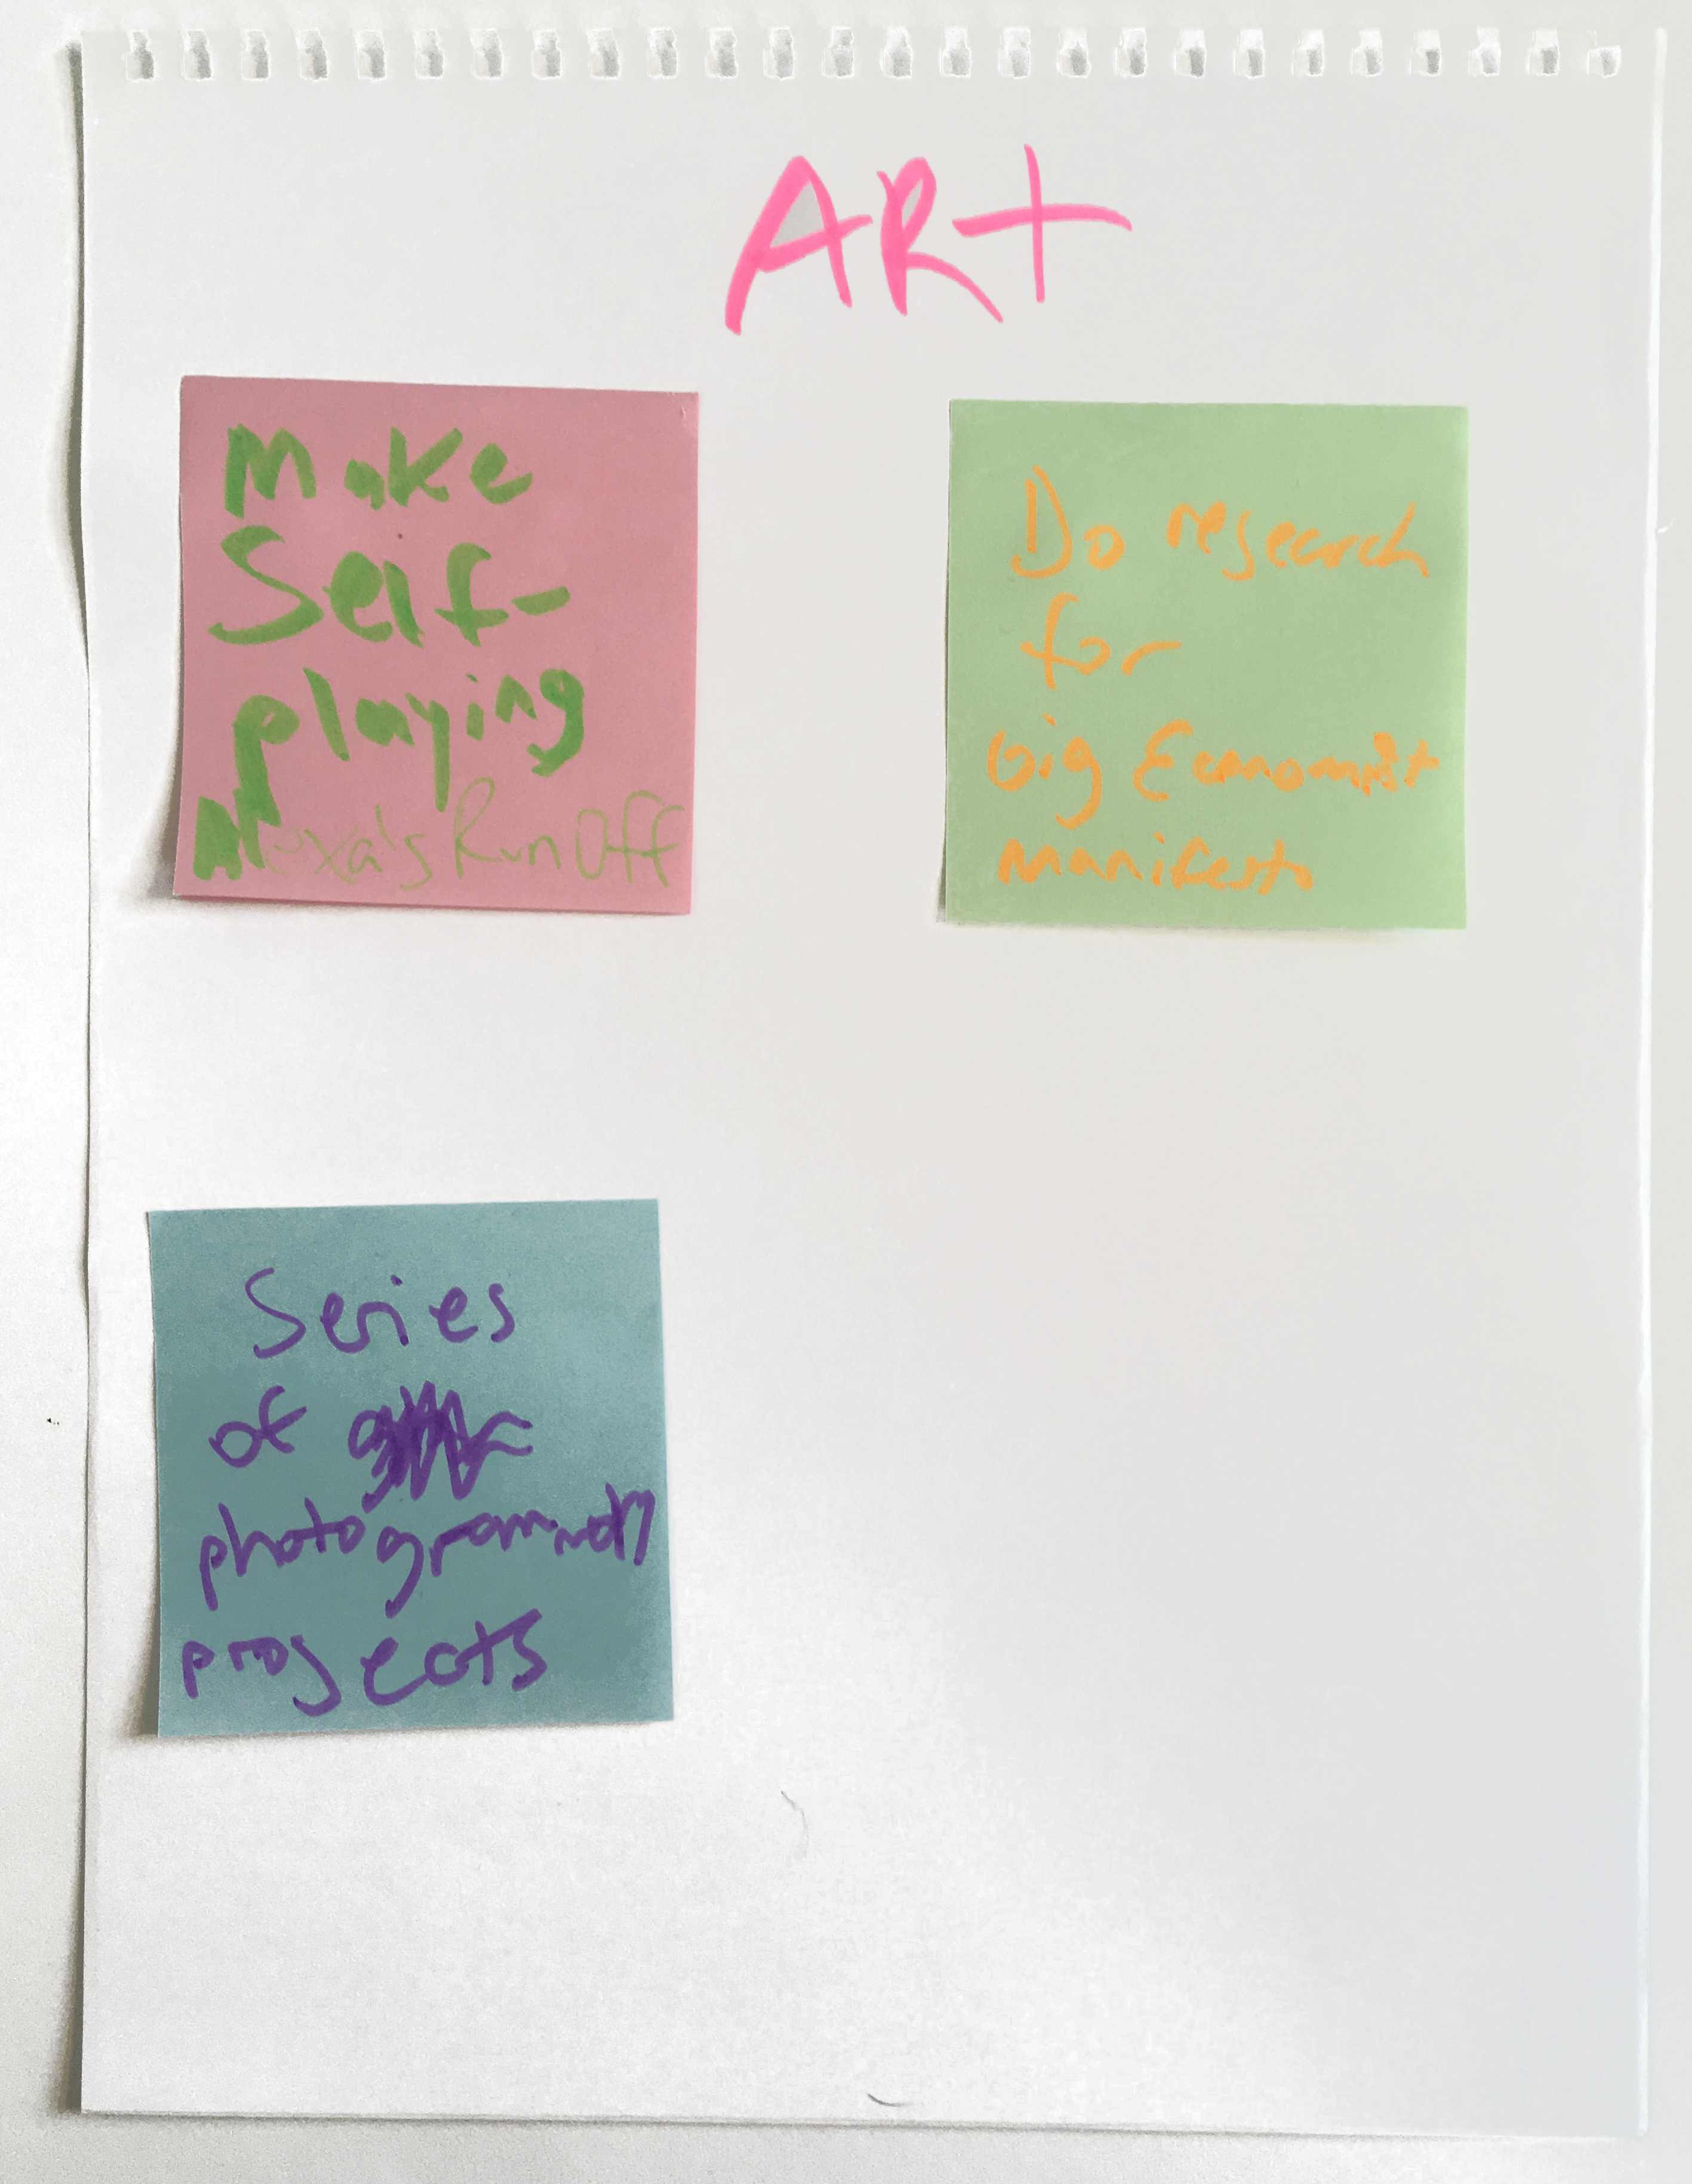 ARt
Make
Self-
playing
Alexa's Run Off
Do research
for
big Economist
manifesto
Series
of
photogrammetry
projects